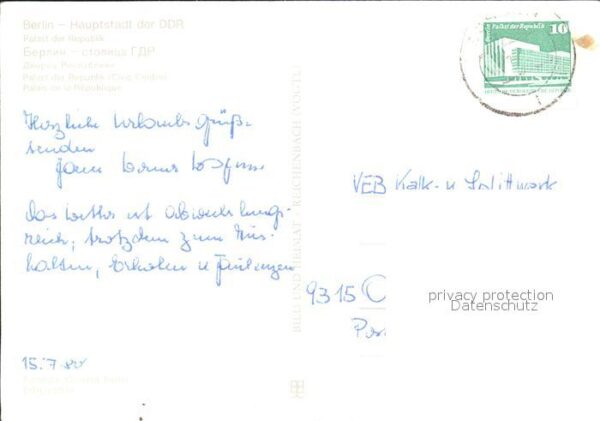 Berlin – Hauptstadt der DDR
Palast der Republik
Берлин – столица ГДР
Дворец Республики
Palast der Republik (Civic Centre)
Palais de la République
Palast der Republik
10
Herzliche Urlaubs Grüß-
senden
Fam
Das Wetter ist abwechslungs-
reich, trotzdem zum Aus-
halten, Erholen u
15.7.80
BILD UND HEIMAT REICHENBACH (VOGTL)
VEB Kalk- u
9315
privacy protection
Datenschutz